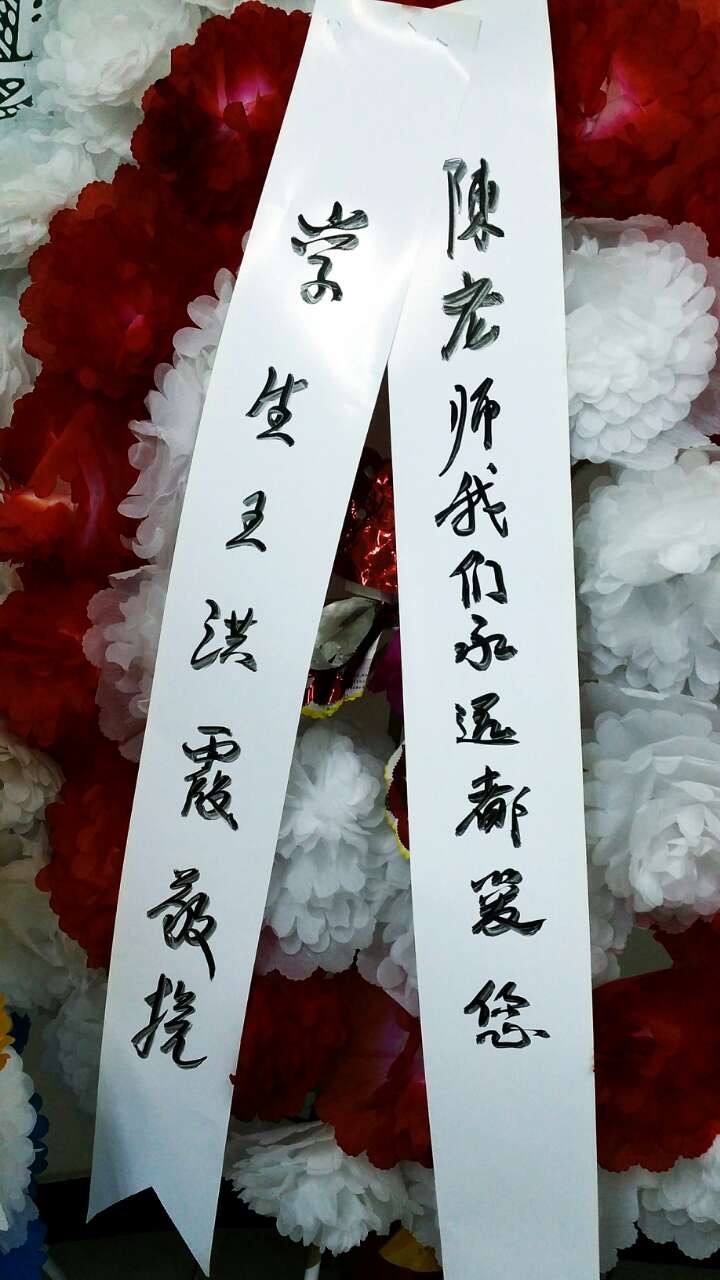 陳老师我们永远都爱您
学生王洪霞敬挽